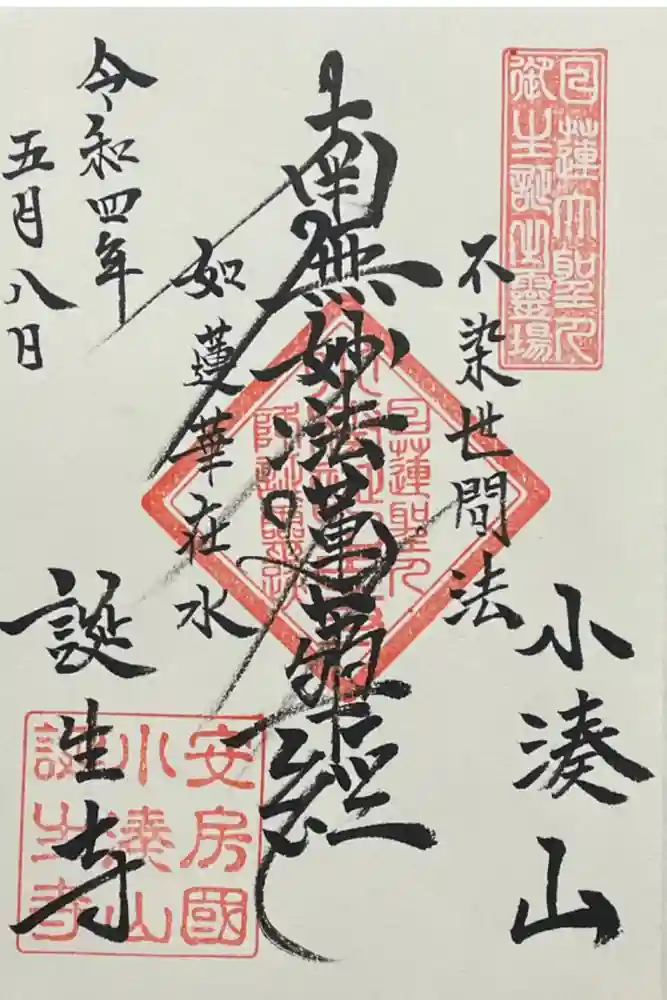 日蓮大聖人
御生誕之霊場
小湊山
不染世間法
南無妙法蓮華経
如蓮華在水
令和四年
五月八日
誕生寺
安房國
小湊山
誕生寺
日蓮聖人